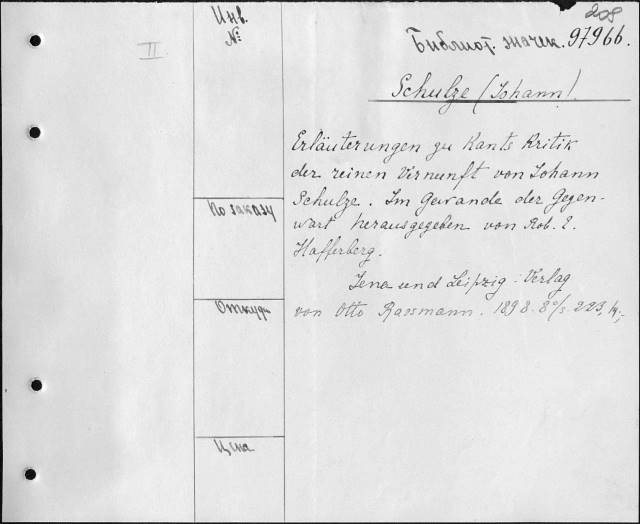 208
Инв.
№
II
Библиот. значек. 97966.
Schulze (Johann).
Erläuterungen zu Kants Kritik
der reinen Vernunft von Johann
Schulze. Im Gewande der Gegen-
wart herausgegeben von Rob. C.
Hafferberg.
Jena und Leipzig: Verlag
von Otto Rassmann. 1898. 8°/s. 223,
По заказу
Откуда
Цена